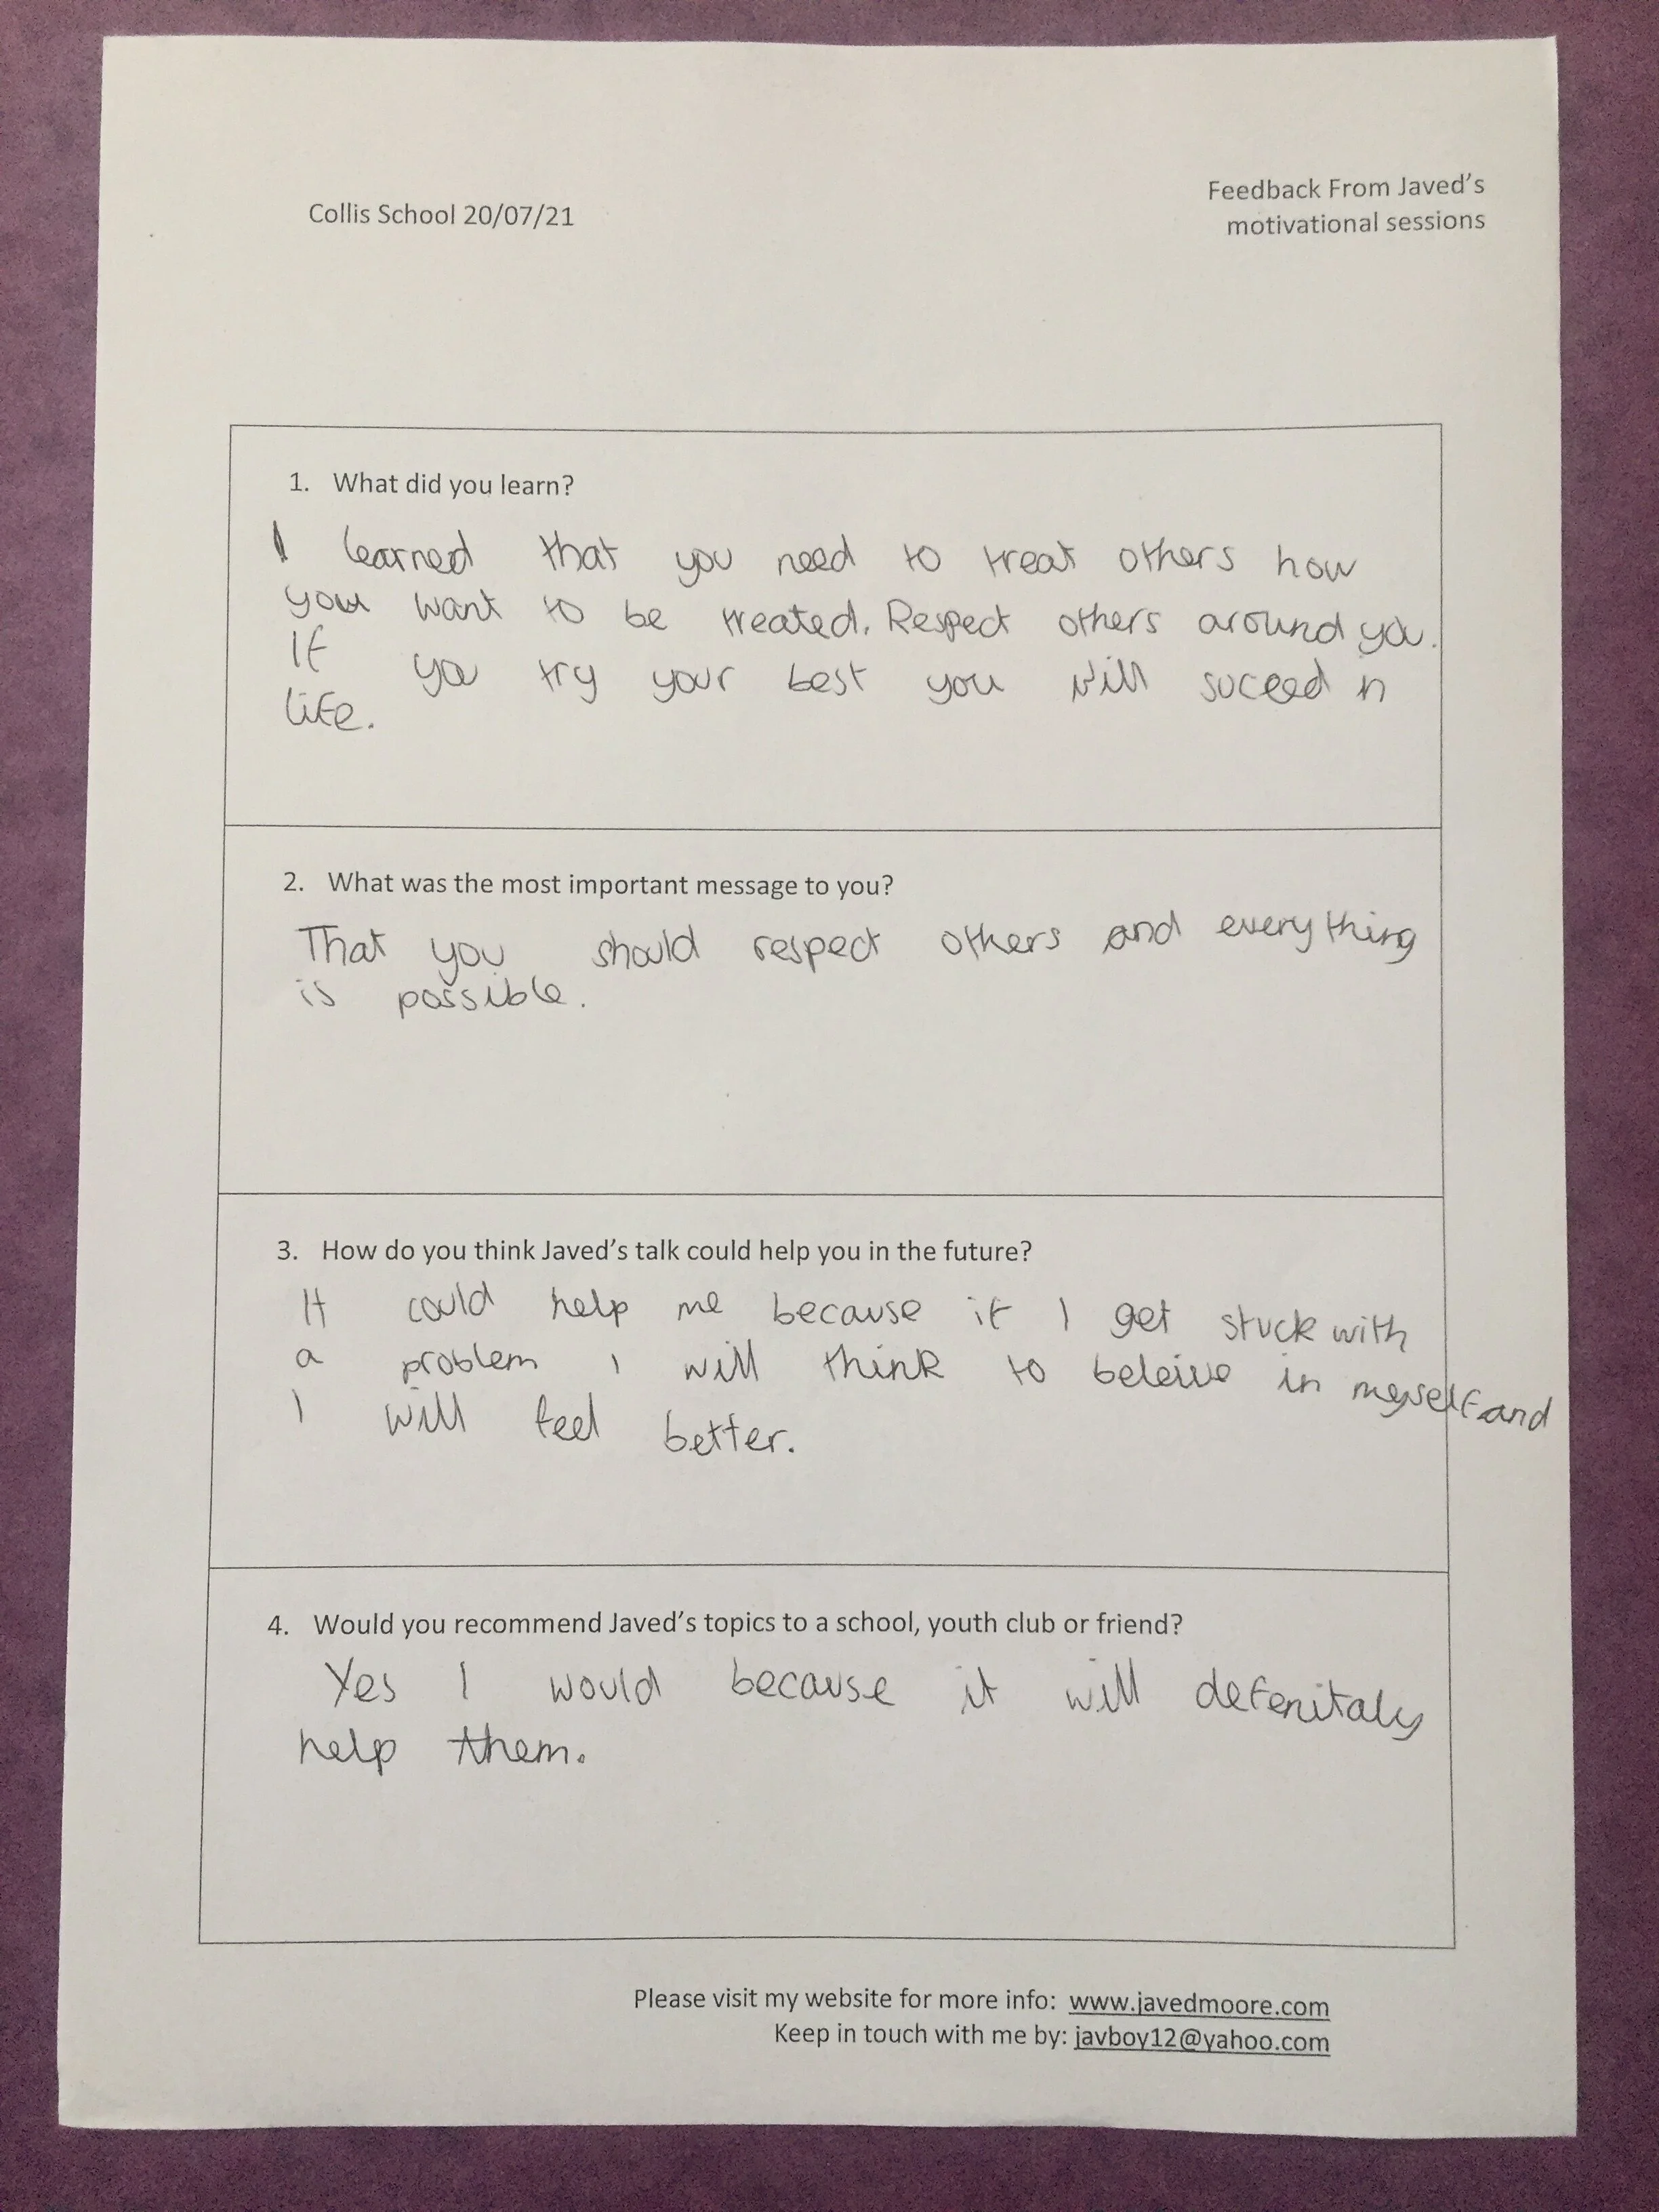 Collis School 20/07/21
Feedback From Javed's
motivational sessions
1. What did you learn?
I learned that you need to treat others how
you want to be treated. Respect others around you.
If
you try your best you will suceed in
life.
2. What was the most important message to you?
That you should respect others and everything
is possible.
3. How do you think Javed's talk could help you in the future?
It could help me because if I get stuck with
a problem I will think to beleive in myself and
I will feel better.
4. Would you recommend Javed's topics to a school, youth club or friend?
Yes I would because it will defenitaly
help them.
Please visit my website for more info: www.javedmoore.com
Keep in touch with me by: javboy12@yahoo.com